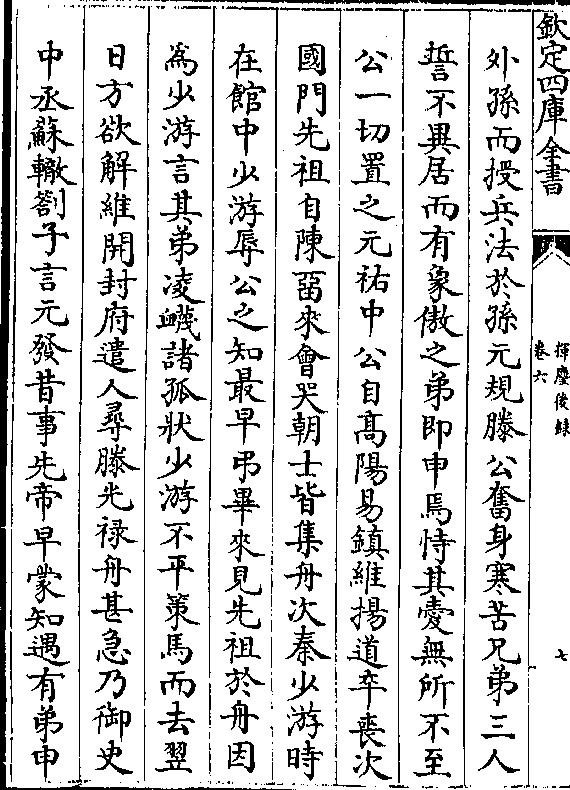 欽定四庫全書
揮麈後録
卷六
七
外孫而授兵法於孫元規滕公奮身寒苦兄弟三人
誓不異居而有象傲之弟即申焉恃其愛無所不至
公一切置之元祐中公自髙陽易鎮維揚道卒喪次
國門先祖自陳留來會哭朝士皆集舟次秦少游時
在館中少游辱公之知最早弔畢來見先祖於舟因
為少游言其弟凌衊諸孤狀少游不平策馬而去翌
日方欲解維開封府遣人尋滕光禄舟甚急乃御史
中丞蘇轍劄子言元發昔事先帝早蒙知遇有弟申